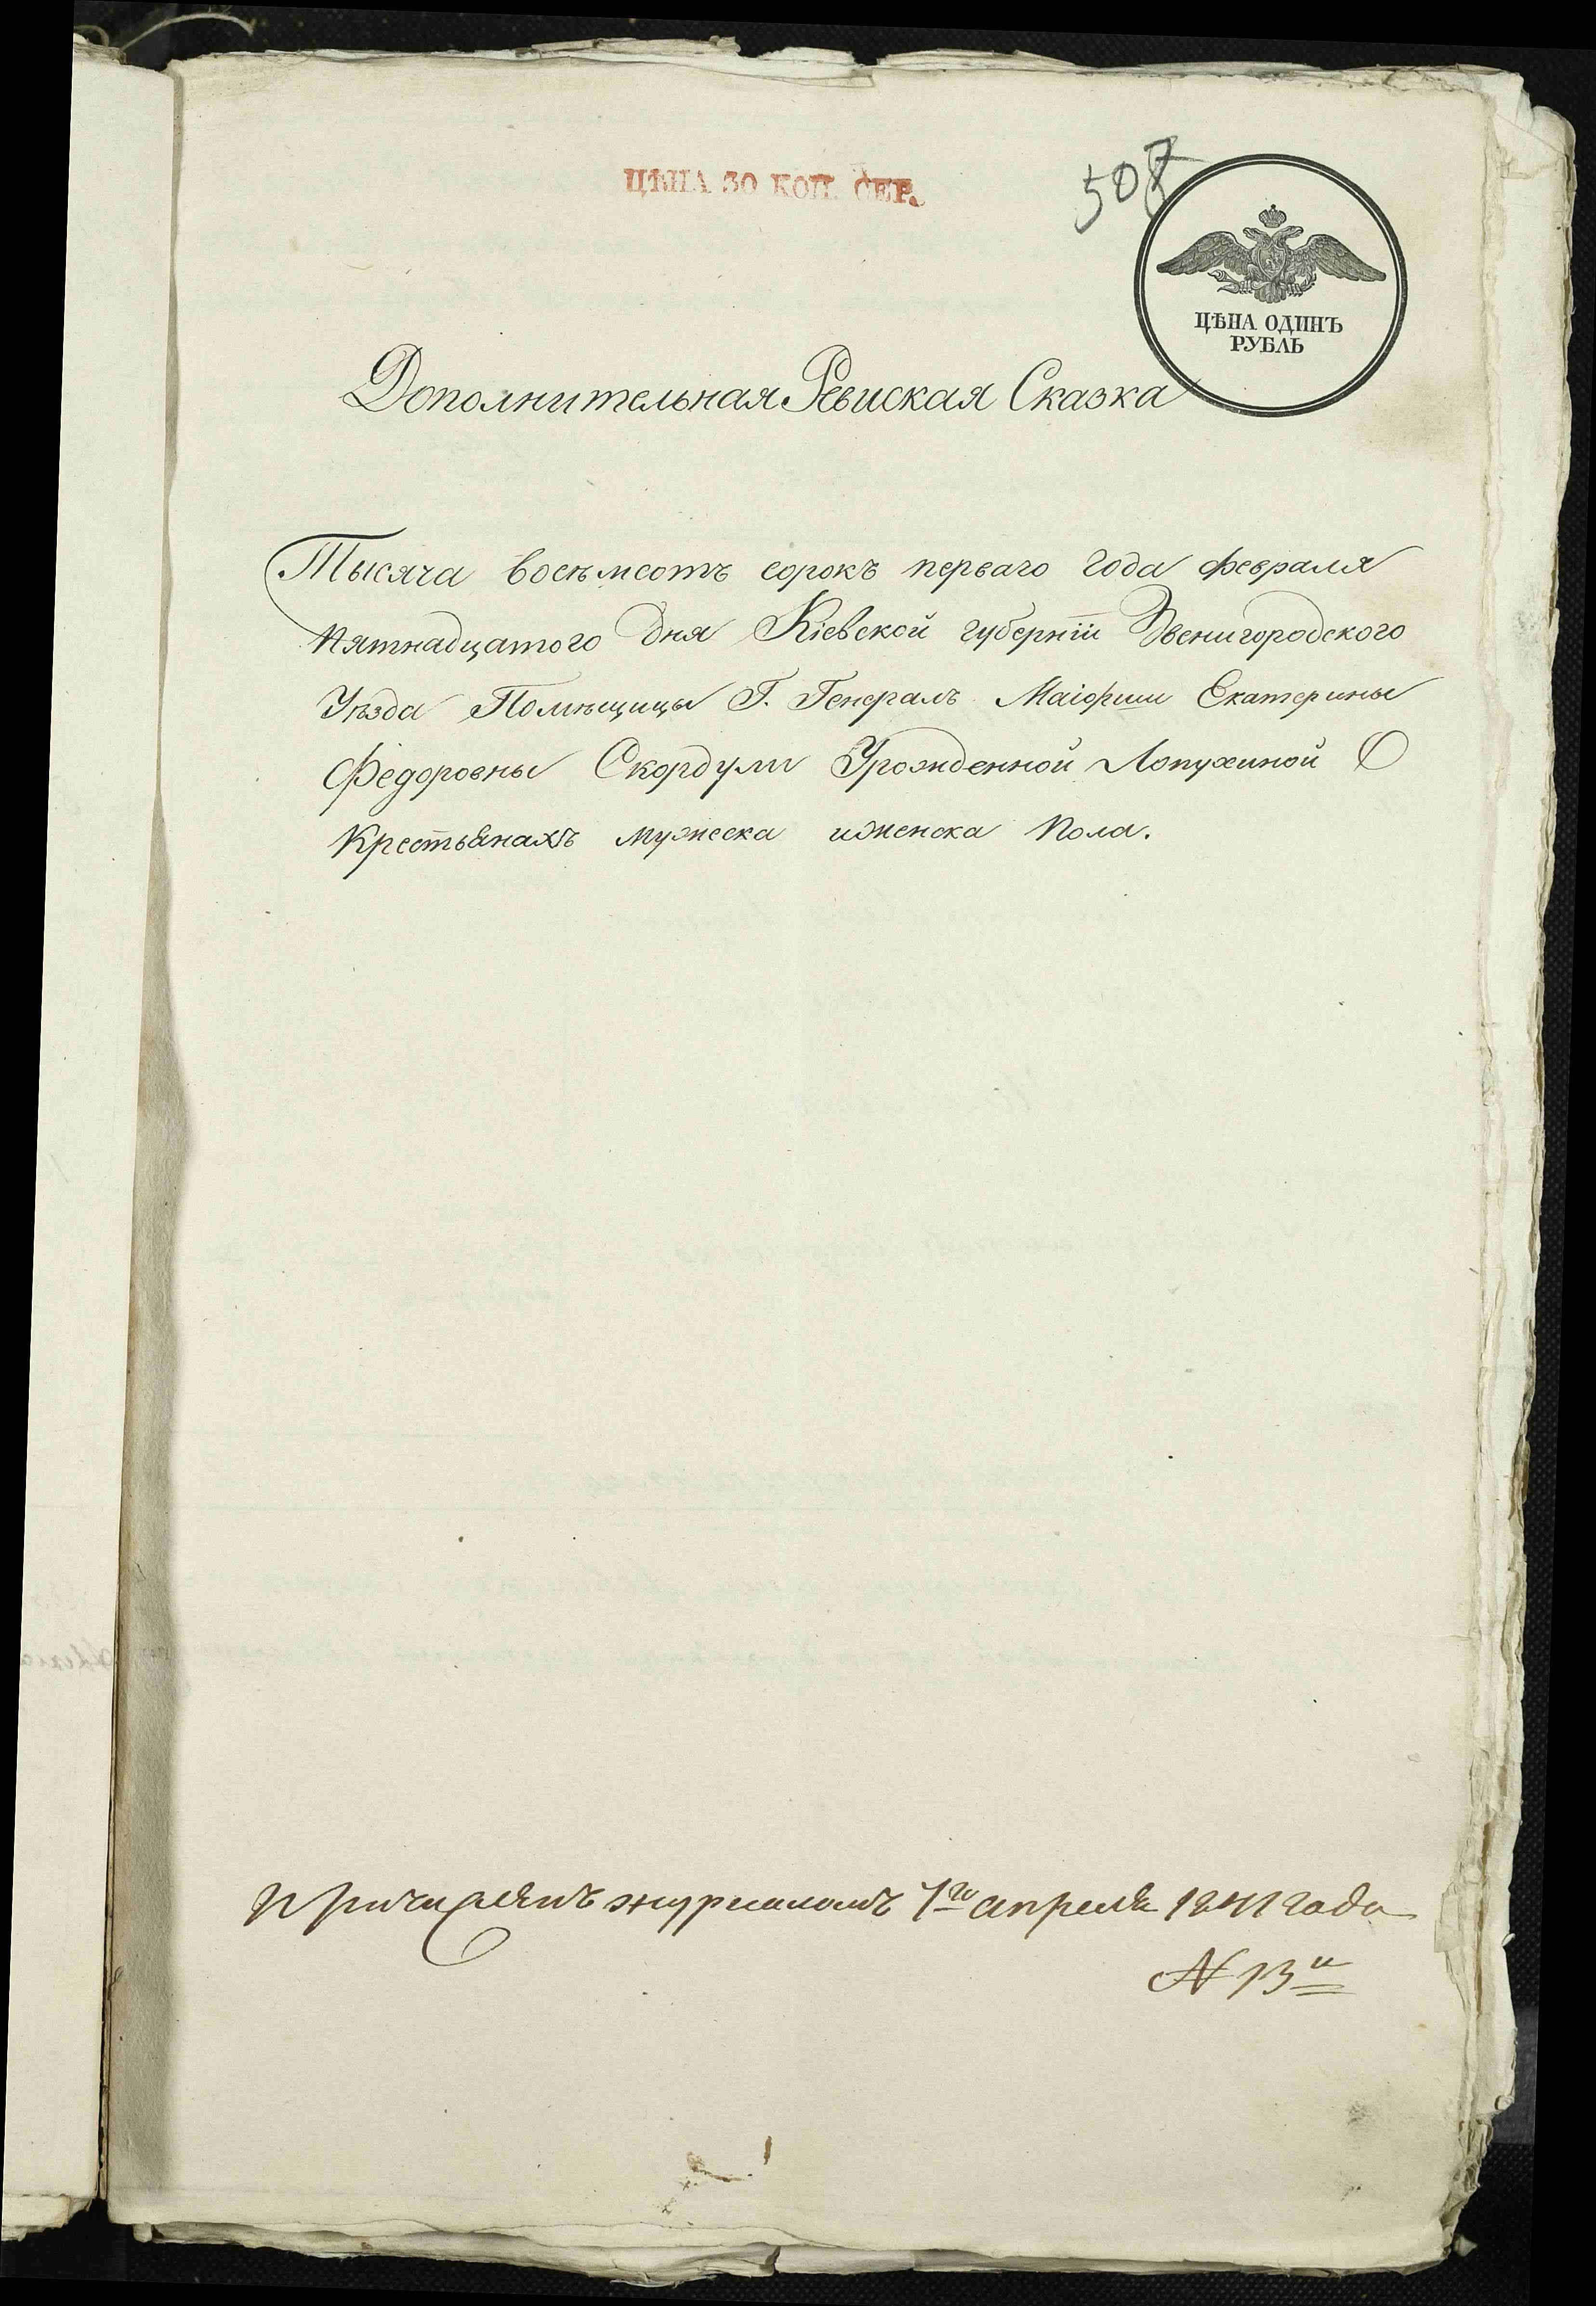 ЦѢНА 30 КОП. СЕР.
508
ЦѢНА ОДИНЪ
РУБЛЬ
Дополнительная Ревиская Сказка
Тысяча восемсотъ сорокъ перваго года февраля
пятнадцатого дня Кіевской губерніи Звенигородского
Уѣзда Помѣщицы Г. Генералъ Маіорши Екатерины
Федоровны Скордули Урожденной Лопухиной О
Крестьянахъ мужеска иженска пола.
журналомъ 1го апреля 1841 года
N 13й